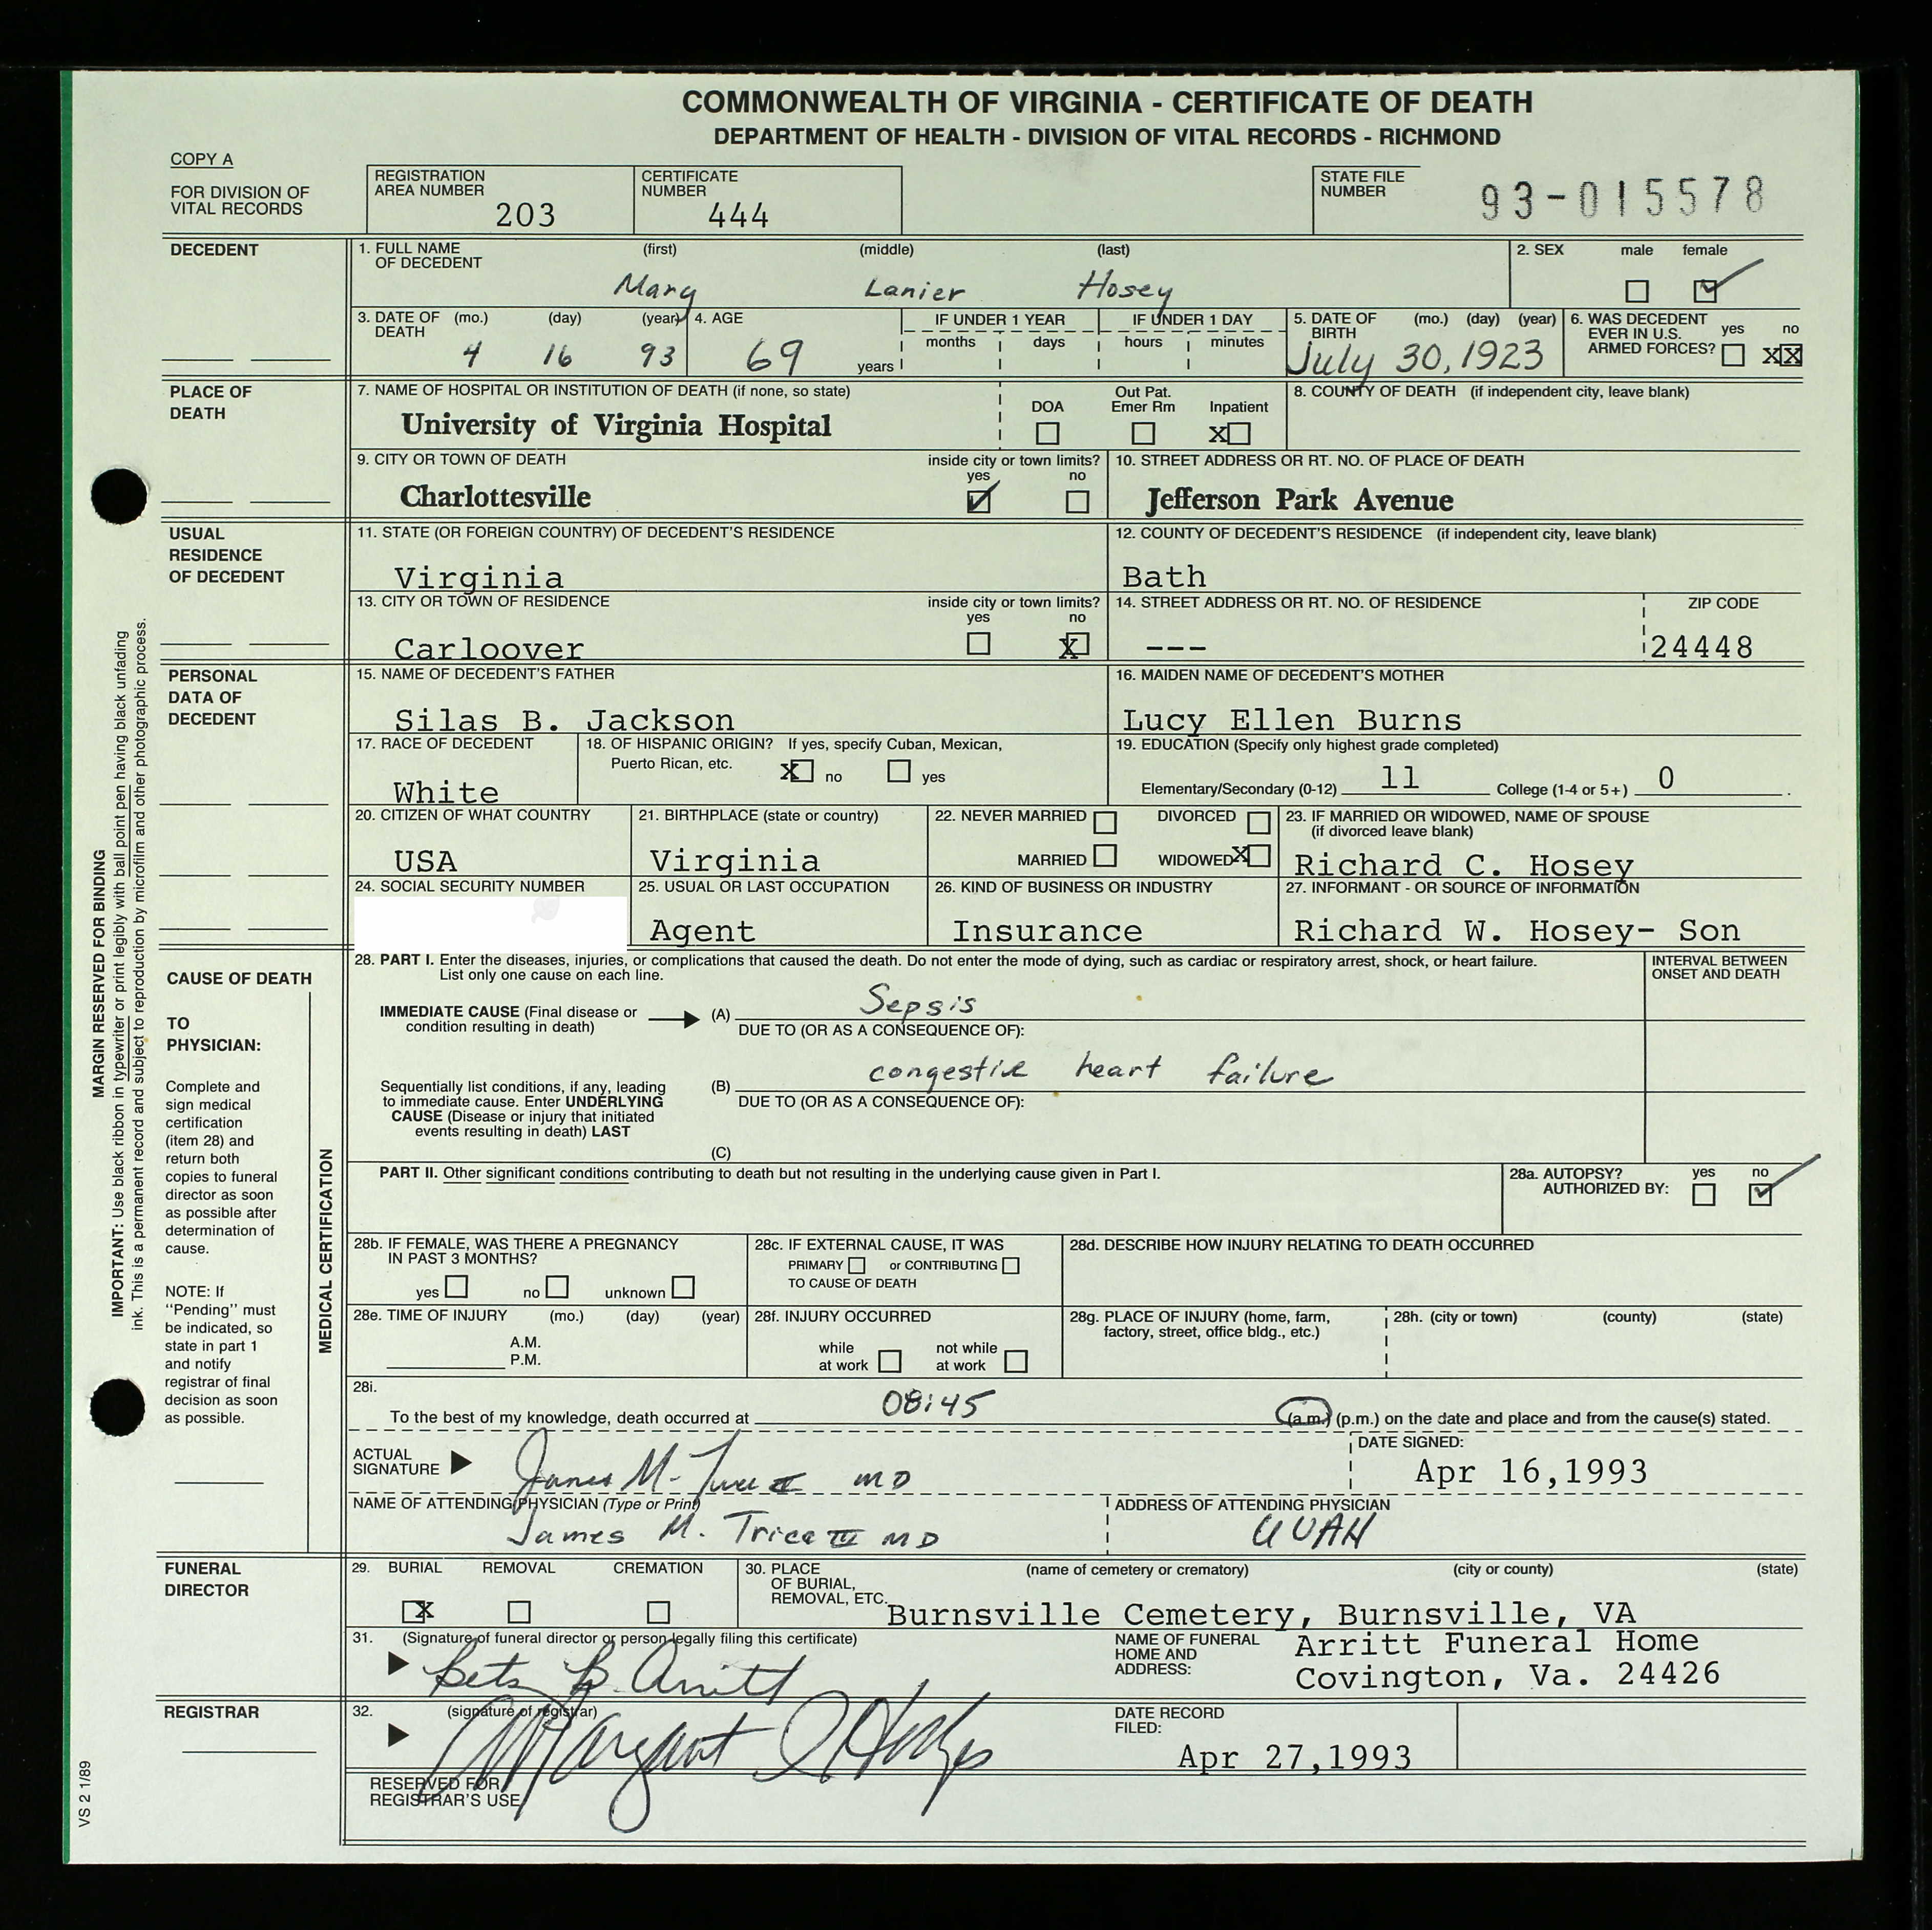 COMMONWEALTH OF VIRGINIA - CERTIFICATE OF DEATH
DEPARTMENT OF HEALTH - DIVISION OF VITAL RECORDS - RICHMOND
COPY A
FOR DIVISION OF VITAL RECORDS
REGISTRATION AREA NUMBER 203
CERTIFICATE NUMBER 444
STATE FILE NUMBER 93-015578
DECEDENT
1. FULL NAME OF DECEDENT (first) (middle) (last)
Mary Lanier Hosey
2. SEX male female
3. DATE OF DEATH (mo.) (day) (year)
4 16 93
4. AGE 69 years
IF UNDER 1 YEAR months days
IF UNDER 1 DAY hours minutes
5. DATE OF BIRTH (mo.) (day) (year)
July 30, 1923
6. WAS DECEDENT EVER IN U.S. ARMED FORCES? yes no XX
PLACE OF DEATH
7. NAME OF HOSPITAL OR INSTITUTION OF DEATH (if none, so state)
University of Virginia Hospital
DOA
Out Pat. Emer Rm
Inpatient X
8. COUNTY OF DEATH (if independent city, leave blank)
9. CITY OR TOWN OF DEATH
Charlottesville
inside city or town limits? yes no
10. STREET ADDRESS OR RT. NO. OF PLACE OF DEATH
Jefferson Park Avenue
USUAL RESIDENCE OF DECEDENT
11. STATE (OR FOREIGN COUNTRY) OF DECEDENT'S RESIDENCE
Virginia
12. COUNTY OF DECEDENT'S RESIDENCE (if independent city, leave blank)
Bath
13. CITY OR TOWN OF RESIDENCE
Carloover
inside city or town limits? yes no X
14. STREET ADDRESS OR RT. NO. OF RESIDENCE
---
ZIP CODE
24448
PERSONAL DATA OF DECEDENT
15. NAME OF DECEDENT'S FATHER
Silas B. Jackson
16. MAIDEN NAME OF DECEDENT'S MOTHER
Lucy Ellen Burns
17. RACE OF DECEDENT
White
18. OF HISPANIC ORIGIN? If yes, specify Cuban, Mexican, Puerto Rican, etc. X no yes
19. EDUCATION (Specify only highest grade completed)
Elementary/Secondary (0-12) 11 College (1-4 or 5+) 0 .
20. CITIZEN OF WHAT COUNTRY
USA
21. BIRTHPLACE (state or country)
Virginia
22. NEVER MARRIED DIVORCED
MARRIED WIDOWED X
23. IF MARRIED OR WIDOWED, NAME OF SPOUSE (if divorced leave blank)
Richard C. Hosey
24. SOCIAL SECURITY NUMBER
25. USUAL OR LAST OCCUPATION
Agent
26. KIND OF BUSINESS OR INDUSTRY
Insurance
27. INFORMANT - OR SOURCE OF INFORMATION
Richard W. Hosey- Son
CAUSE OF DEATH
TO PHYSICIAN:
Complete and sign medical certification (item 28) and return both copies to funeral director as soon as possible after determination of cause.
NOTE: If "Pending" must be indicated, so state in part 1 and notify registrar of final decision as soon as possible.
MEDICAL CERTIFICATION
28. PART I. Enter the diseases, injuries, or complications that caused the death. Do not enter the mode of dying, such as cardiac or respiratory arrest, shock, or heart failure.
List only one cause on each line.
INTERVAL BETWEEN ONSET AND DEATH
IMMEDIATE CAUSE (Final disease or condition resulting in death)
(A) Sepsis
DUE TO (OR AS A CONSEQUENCE OF):
Sequentially list conditions, if any, leading to immediate cause. Enter UNDERLYING CAUSE (Disease or injury that initiated events resulting in death) LAST
(B) congestive heart failure
DUE TO (OR AS A CONSEQUENCE OF):
(C)
PART II. Other significant conditions contributing to death but not resulting in the underlying cause given in Part I.
28a. AUTOPSY? yes no
AUTHORIZED BY:
28b. IF FEMALE, WAS THERE A PREGNANCY IN PAST 3 MONTHS?
yes no unknown
28c. IF EXTERNAL CAUSE, IT WAS
PRIMARY or CONTRIBUTING
TO CAUSE OF DEATH
28d. DESCRIBE HOW INJURY RELATING TO DEATH OCCURRED
28e. TIME OF INJURY (mo.) (day) (year)
A.M.
P.M.
28f. INJURY OCCURRED
while at work not while at work
28g. PLACE OF INJURY (home, farm, factory, street, office bldg., etc.)
28h. (city or town) (county) (state)
28i.
To the best of my knowledge, death occurred at 08:45 (a.m.) (p.m.) on the date and place and from the cause(s) stated.
ACTUAL SIGNATURE James M. Trice III MD
DATE SIGNED:
Apr 16,1993
NAME OF ATTENDING PHYSICIAN (Type or Print)
James M. Trice III MD
ADDRESS OF ATTENDING PHYSICIAN
UVAH
FUNERAL DIRECTOR
29. BURIAL REMOVAL CREMATION
X
30. PLACE OF BURIAL, REMOVAL, ETC. (name of cemetery or crematory) (city or county) (state)
Burnsville Cemetery, Burnsville, VA
31. (Signature of funeral director or person legally filing this certificate)
B. Arritt
NAME OF FUNERAL HOME AND ADDRESS:
Arritt Funeral Home
Covington, Va. 24426
REGISTRAR
32. (signature of registrar)
Margaret Hodges
DATE RECORD FILED:
Apr 27,1993
RESERVED FOR REGISTRAR'S USE
MARGIN RESERVED FOR BINDING
IMPORTANT: Use black ribbon in typewriter or print legibly with ball point pen having black unfading
ink. This is a permanent record and subject to reproduction by microfilm and other photographic process.
VS 2 1/89